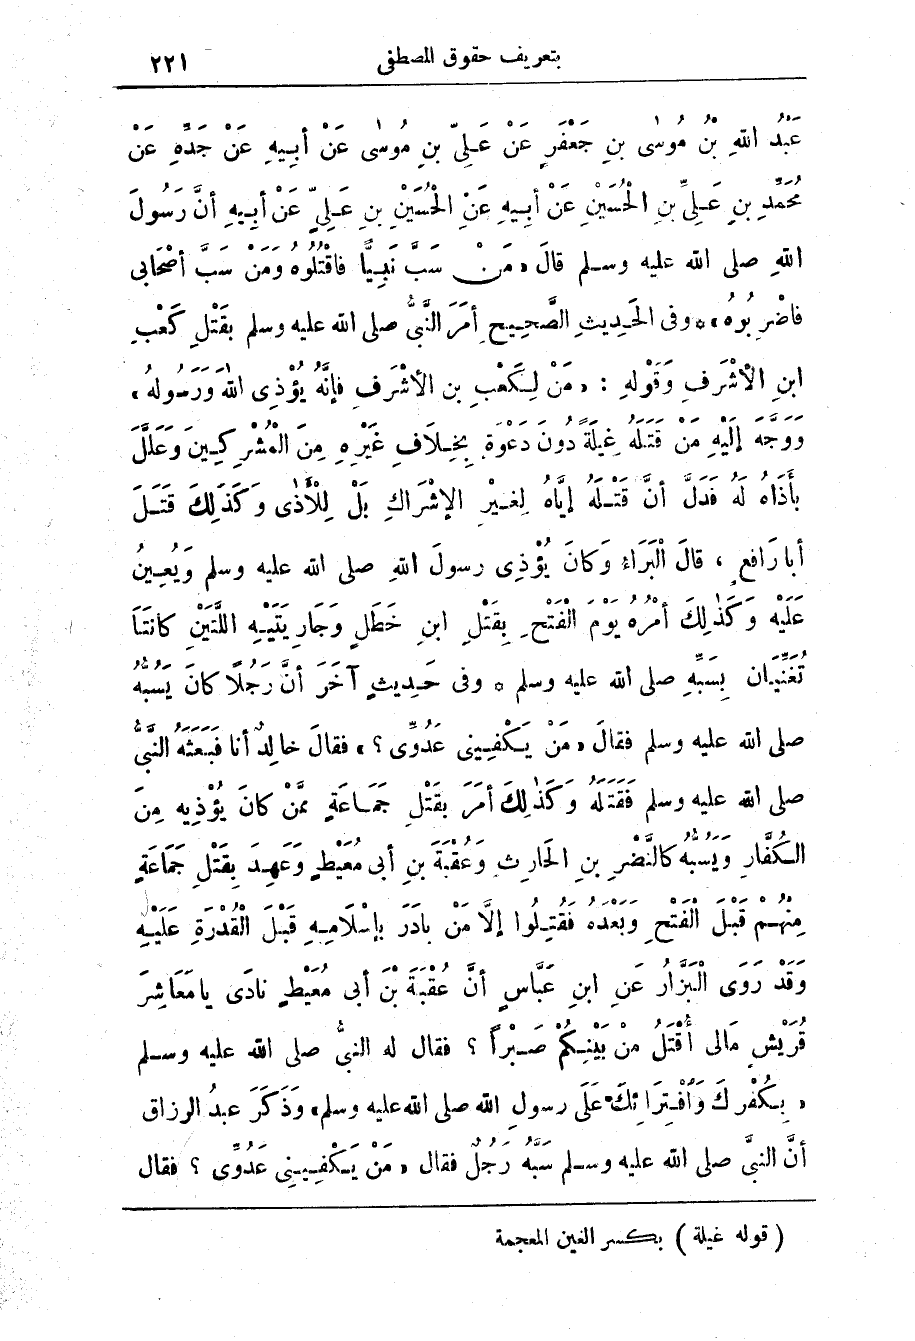 بتعريف حقوق المصطفى
٢٢١
عَبْدُ اللهِ بْنُ مُوسٰى بنِ جَعْفَرٍ عَنْ عَلِيِّ بنِ مُوسٰى عَنْ أبِيهِ عَنْ جَدِّهِ عَنْ
مُحَمَّدِ بنِ عَلِيِّ بنِ الْحُسَيْنِ عَنْ أبِيهِ عَنِ الْحُسَيْنِ بنِ عَلِيٍّ عَنْ أبِيهِ أنَّ رَسُولَ
اللهِ صلى الله عليه وسلم قالَ «مَنْ سَبَّ نَبِيًّا فاقْتُلُوهُ وَمَنْ سَبَّ أصْحَابِى
فاضْرِبُوهُ» * وفى الحَدِيثِ الصَّحِيحِ أمَرَ النَّبىُّ صلى الله عليه وسلم بقَتْلِ كَعْبِ
ابنِ الْأشْرَفِ وَقَوْلِهِ : «مَنْ لِكَعْبِ بنِ الأشْرَفِ فإنَّهُ يُؤْذِى اللهَ وَرَسُولهُ»
وَوَجَّهَ إلَيْهِ مَنْ قَتَلَهُ غِيلَةً دُونَ دَعْوَةٍ بِخِلَافِ غَيْرِهِ مِنَ الْمُشْرِكِينَ وَعَلَّلَ
بأَذَاهُ لَهُ فَدَلَّ أنَّ قَتْلَهُ إيَّاهُ لِغَيْرِ الإشْرَاكِ بَلْ لِلْأذٰى وَكَذٰلِكَ قَتَلَ
أبا رَافِعٍ ، قالَ الْبَرَاءُ وَكانَ يُؤْذِى رسولَ اللهِ صلى الله عليه وسلم وَيُعِينُ
عَلَيْهِ وَكَذٰلِكَ أمْرُهُ يَوْمَ الْفَتْحِ بِقَتْلِ ابنِ خَطَلٍ وَجَارِيَتَيْهِ اللَّتَيْنِ كانَتَا
تُغَنِّيَانِ بِسَبِّهِ صلى الله عليه وسلم * وفى حَدِيثٍ آخَرَ أنَّ رَجُلًا كانَ يَسُبُّهُ
صلى الله عليه وسلم فقالَ «مَنْ يَكْفِينِى عَدُوِّى ؟» فقالَ خالِدٌ أنا فَبَعَثَهُ النَّبىُّ
صلى الله عليه وسلم فَقَتَلَهُ وَكَذٰلِكَ أمَرَ بقَتْلِ جَمَاعَةٍ مِمَّنْ كانَ يُؤْذِيهِ مِنَ
الكُفَّارِ وَيَسُبُّهُ كالنَّضْرِ بنِ الحَارِثِ وَعُقْبَةَ بنِ أبى مُعَيْطٍ وَعَهِدَ بِقَتْلِ جَمَاعَةٍ
مِنْهُمْ قَبْلَ الْفَتْحِ وَبَعْدَهُ فَقُتِلُوا إلَّا مَنْ بادَرَ بإسْلَامِهِ قَبْلَ الْقُدْرَةِ عَلَيْهِ
وَقَدْ رَوَى الْبَزَّارُ عَنِ ابنِ عَبَّاسٍ أنَّ عُقْبَةَ بْنَ أبى مُعَيْطٍ نادَى يا مَعَاشِرَ
قُرَيْشٍ مَالى أُقْتَلُ مِنْ بَيْنِكُمْ صَبْراً ؟ فقال له النبىُّ صلى الله عليه وسلم
«بِكُفْرِكَ وَافْتِرَائِكَ عَلَى رسولِ الله صلى الله عليه وسلم» وَذَكَرَ عبدُ الرزاق
أنَّ النبىَّ صلى الله عليه وسلم سَبَّهُ رَجُلٌ فقال «مَنْ يَكْفِينِى عَدُوِّى ؟ فقال
( قوله غيلة ) بكسر الغين المعجمة